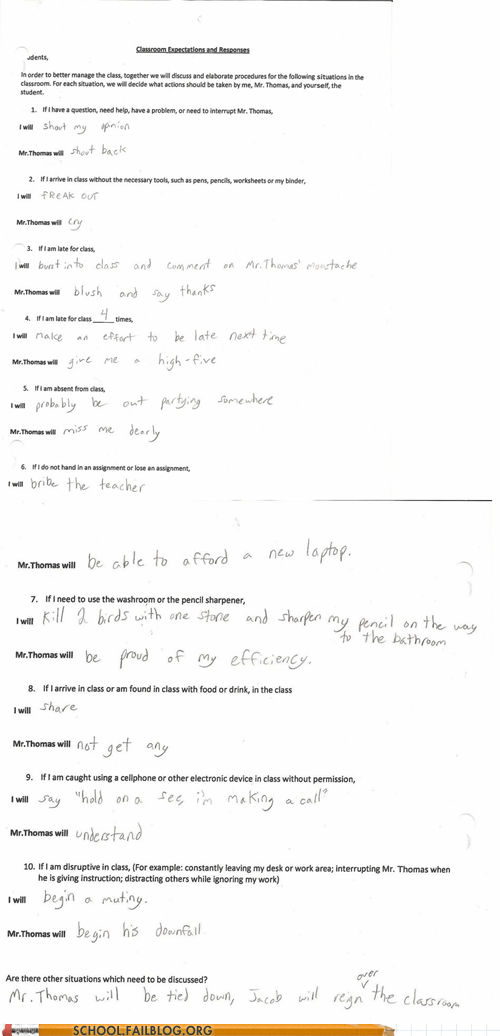 Classroom Expectations and Responses
udents,
In order to better manage the class, together we will discuss and elaborate procedures for the following situations in the
classroom. For each situation, we will decide what actions should be taken by me, Mr. Thomas, and yourself, the
student.
1. If I have a question, need help, have a problem, or need to interrupt Mr. Thomas,
I will shout my opinion
Mr.Thomas will shout back
2. If I arrive in class without the necessary tools, such as pens, pencils, worksheets or my binder,
I will FREAK OUT
Mr.Thomas will cry
3. If I am late for class,
I will burst into class and comment on Mr. Thomas' moustache
Mr.Thomas will blush and say thanks
4. If I am late for class 4 times,
I will make an effort to be late next time
Mr.Thomas will give me a high-five
5. If I am absent from class,
I will probably be out partying somewhere
Mr.Thomas will miss me dearly
6. If I do not hand in an assignment or lose an assignment,
I will bribe the teacher
Mr.Thomas will be able to afford a new laptop.
7. If I need to use the washroom or the pencil sharpener,
I will Kill 2 birds with one stone and sharpen my pencil on the way
to the bathroom
Mr.Thomas will be proud of my efficiency.
8. If I arrive in class or am found in class with food or drink, in the class
I will share
Mr.Thomas will not get any
9. If I am caught using a cellphone or other electronic device in class without permission,
I will say "hold on a sec, i'm making a call"
Mr.Thomas will understand
10. If I am disruptive in class, (For example: constantly leaving my desk or work area; interrupting Mr. Thomas when
he is giving instruction; distracting others while ignoring my work)
I will begin a mutiny.
Mr.Thomas will begin his downfall
Are there other situations which need to be discussed?
Mr. Thomas will be tied down, Jacob will reign over the classroom
SCHOOL.FAILBLOG.ORG